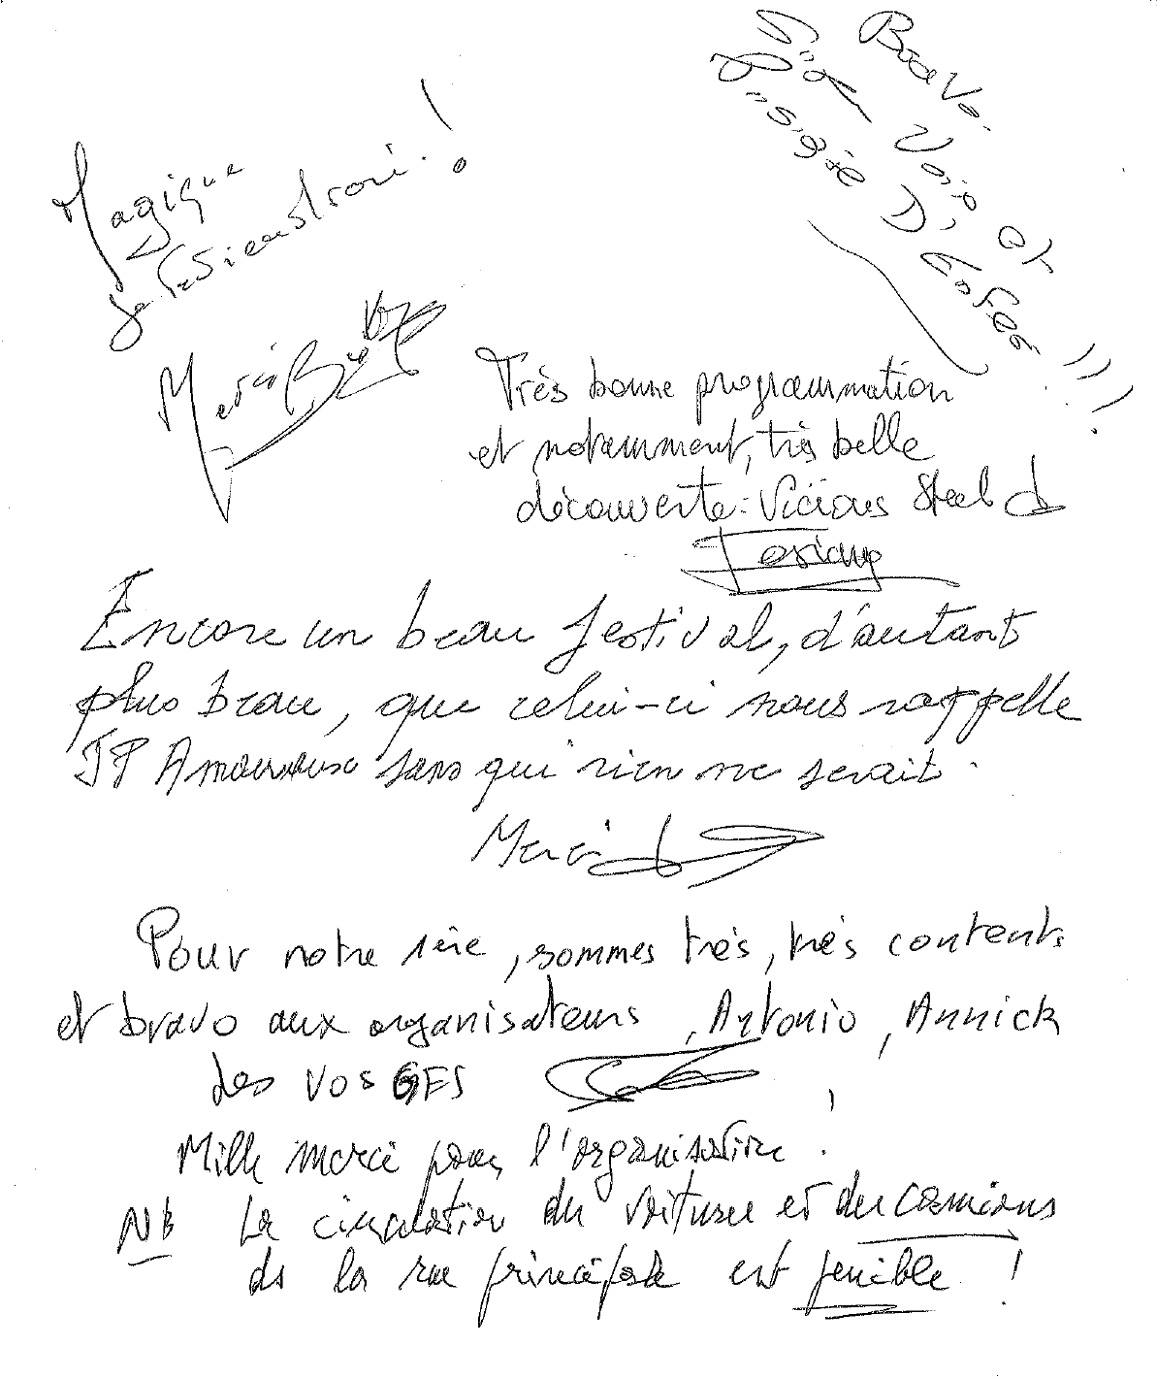 Magique
je reviendrai !
Merci
Bravo.
Voix et
D'Enfer !!!
Très bonne programmation
et notamment, très belle
découverte : Vicious Steel
Encore un beau festival, d'autant
plus beau, que celui-ci nous rappelle
JP Amouroux sans qui rien ne serait.
Merci
Pour notre 1ère, sommes très, très contents
et bravo aux organisateurs, Antonio, Annick
des VOSGES
Mille merci pour l'organisation !
NB La circulation des voitures et des camions
de la rue principale est pénible !